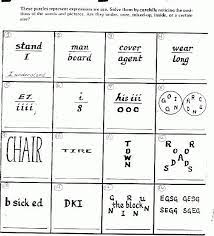 These puzzles represent expressions we use. Solve them by carefully noticing the posi-
tions of the words and pictures. Are they under, over, mixed-up, inside, or a certain
size?
stand
I
I understand
man
board
cover
agent
wear
long
EZ
iiii
i
8
his iii
000
GOING
ARC
CHAIR
TIRE
T
O
W
N
ROADS
ROADS
b sick ed
DKI
GRUN
the block
NIN
EGSG GESG
SEGG SGEG